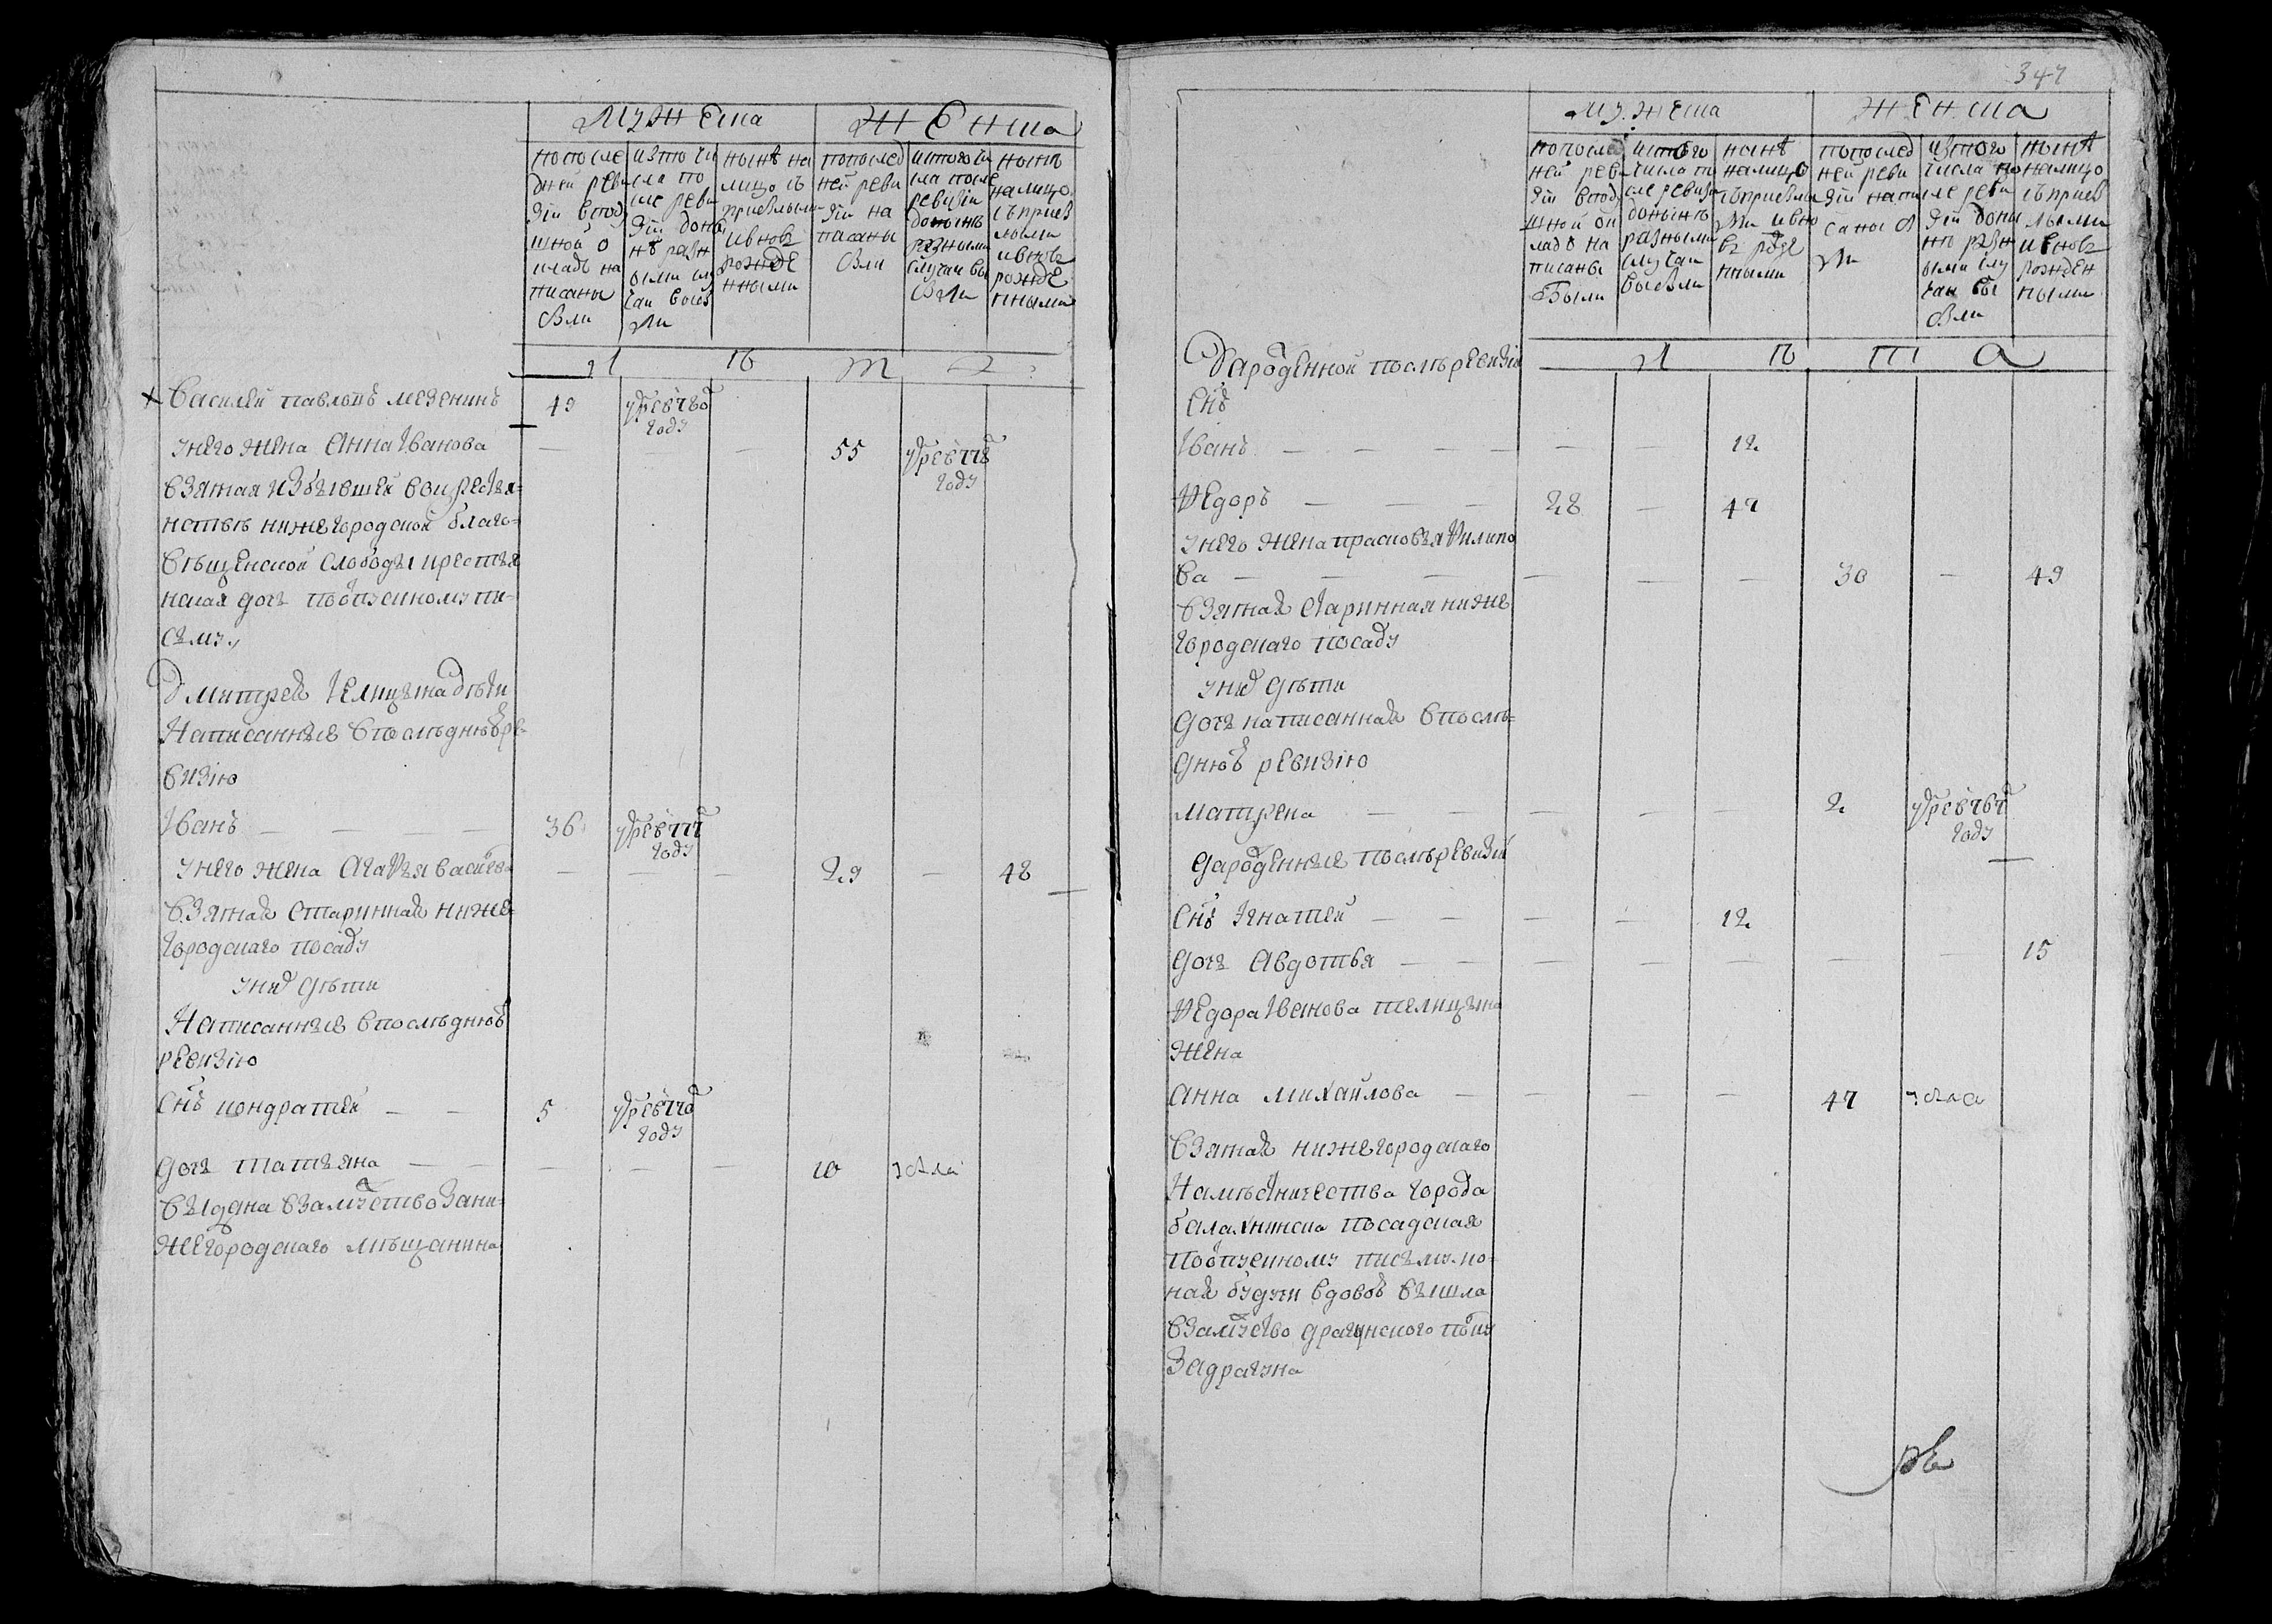 Мужеска
Женска
по после
дней реви
зіи в под
шной о
кладъ на
писаны
были
изто чи
сла по
сле реви
зіи доны
нѣ разн
ыми слу
чаи выбы
ли
нынѣ на
лицо съ
прибылыми
и вновь
рожде
нными
по послед
ней реви
зіи на
писаны
были
истого чи
сла после
ревизіи
доныне
разными
случаи вы
были
нынѣ
налицо
съ прибы
лыми
и вновь
рожде
нными
л ѣ т а
Василей Павловъ Мезенинъ 49 умре въ 780 году
у него жена Анна Иванова — — — 55 умре въ 778 году
взятая из бывшей во крестья-
нствѣ нижегородской благо-
вѣщенской слободы крестья
нская дочь по отпускному пи-
сьму
Дмитрея Телицына дѣти
Написанныя в последнюю ре-
визію
Иванъ — — — — 36 умре въ 777 году
у него жена Агафья Васильева — — — 29 — 48
взятая старинная ниже-
городскаго посаду
у них дѣти
Написанныя в последнюю
ревизію
Снъ Кондратей — — 5 умре въ 770 году
дочь Татьяна — — — — — 10 убыла
выдана в замужство за ни-
жегородскаго мѣщанина
347
Мужеска
Женска
по после
ней реви
зіи в под
шной ок
ладъ на
писаны
были
истого
числа по
сле ревизіи
донынѣ
разными
случаи
выбыли
нынѣ
налицо
съ прибылы
ми и вно
вь рожде
нными
по послед
ней реви
зіи напи
саны бы
ли
изтого
числа по
сле реви
зіи доны
нѣ разн
ыми слу
чаи вы
были
нынѣ
налицо
съ прибы
лыми
и вновь
рожден
ными
л ѣ т а
Зароденной послѣ ревизіи
Снъ
Иванъ — — — — — — 12
Федоръ — — — 28 — 47
у него жена Прасковья Филипо
ва — — — — — — 30 — 49
взятая старинная ниже
городскаго посаду
у них дѣти
дочь написанная в послѣ-
днюю ревизію
Матрена — — — — — — 2 умре въ 767 году
Зароденныя послѣ ревизіи
Снъ Игнатей — — — — 12
дочь Авдотья — — — — — — — 15
Федора Иванова Телицына
жена
Анна Михайлова — — — — 47 убыла
взятая нижегородскаго
Намѣстничества города
балахнинска посадская
по отпускному письму ко-
ная будучи вдовою вышла
взамуство драгунского полку
за драгуна